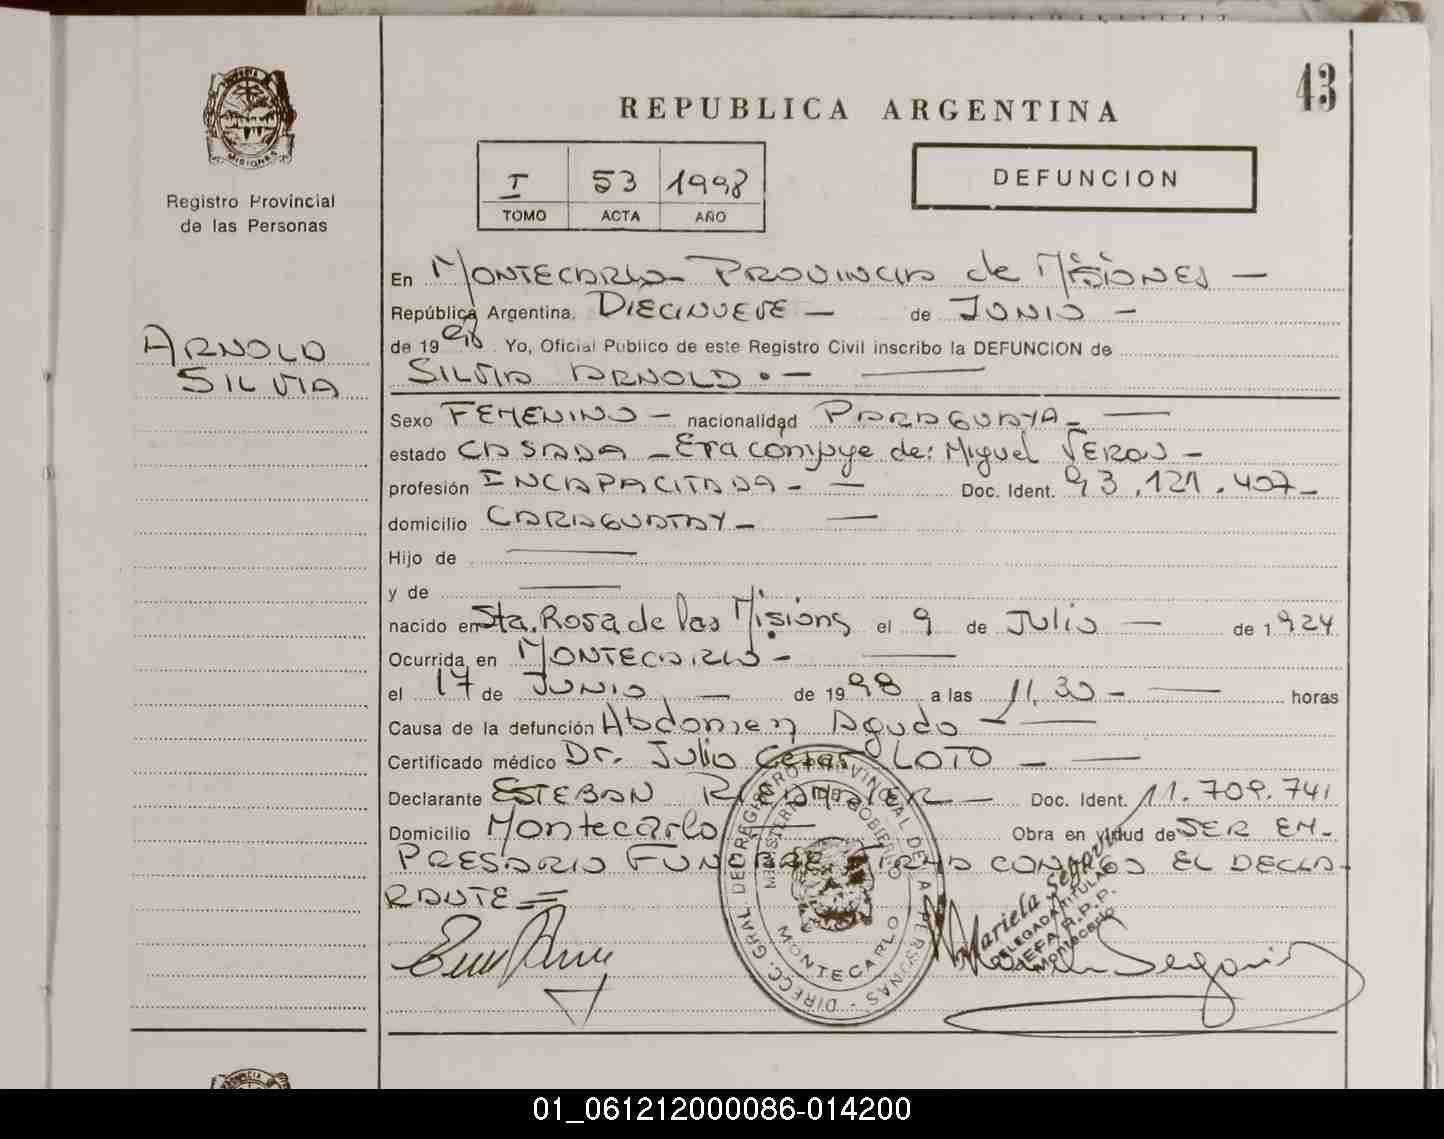 43
REPUBLICA ARGENTINA
MISIONES
Registro Provincial
de las Personas
I 53 1998
TOMO ACTA AÑO
DEFUNCION
ARNOLD
SILVIA
En MONTECARLO PROVINCIA de MISIONES —
República Argentina, DIECINUEVE — de JUNIO —
de 1998 Yo, Oficial Público de este Registro Civil inscribo la DEFUNCION de
SILVIA ARNOLD. —
Sexo FEMENINO — nacionalidad PARAGUAYA —
estado CASADA — Era conyuye de: Miguel VERON —
profesión INCAPACITADA — Doc. Ident. 93.121.407 —
domicilio CARAGUATAY —
Hijo de —
y de —
nacido en Sta. Rosa de las Misions el 9 de Julio — de 1924
Ocurrida en MONTECARLO —
el 17 de JUNIO — de 1998 a las 11,30 — horas
Causa de la defunción Abdomen Agudo —
Certificado médico Dr. Julio Cesar LOTO —
Declarante ESTEBAN Doc. Ident. 11.709.741
Domicilio Montecarlo — Obra en virtud de SER EM-
PRESARIO FUNEBRE FIRMA CONMIGO EL DECLA-
RANTE =
DIRECC. GRAL. DEL REGISTRO PROVINCIAL DE LAS PERSONAS
MINISTERIO DE GOBIERNO
MONTECARLO
Mariela Segovia
DELEGADA TITULAR
JEFA R.P.P.
Montecarlo
01_061212000086-014200